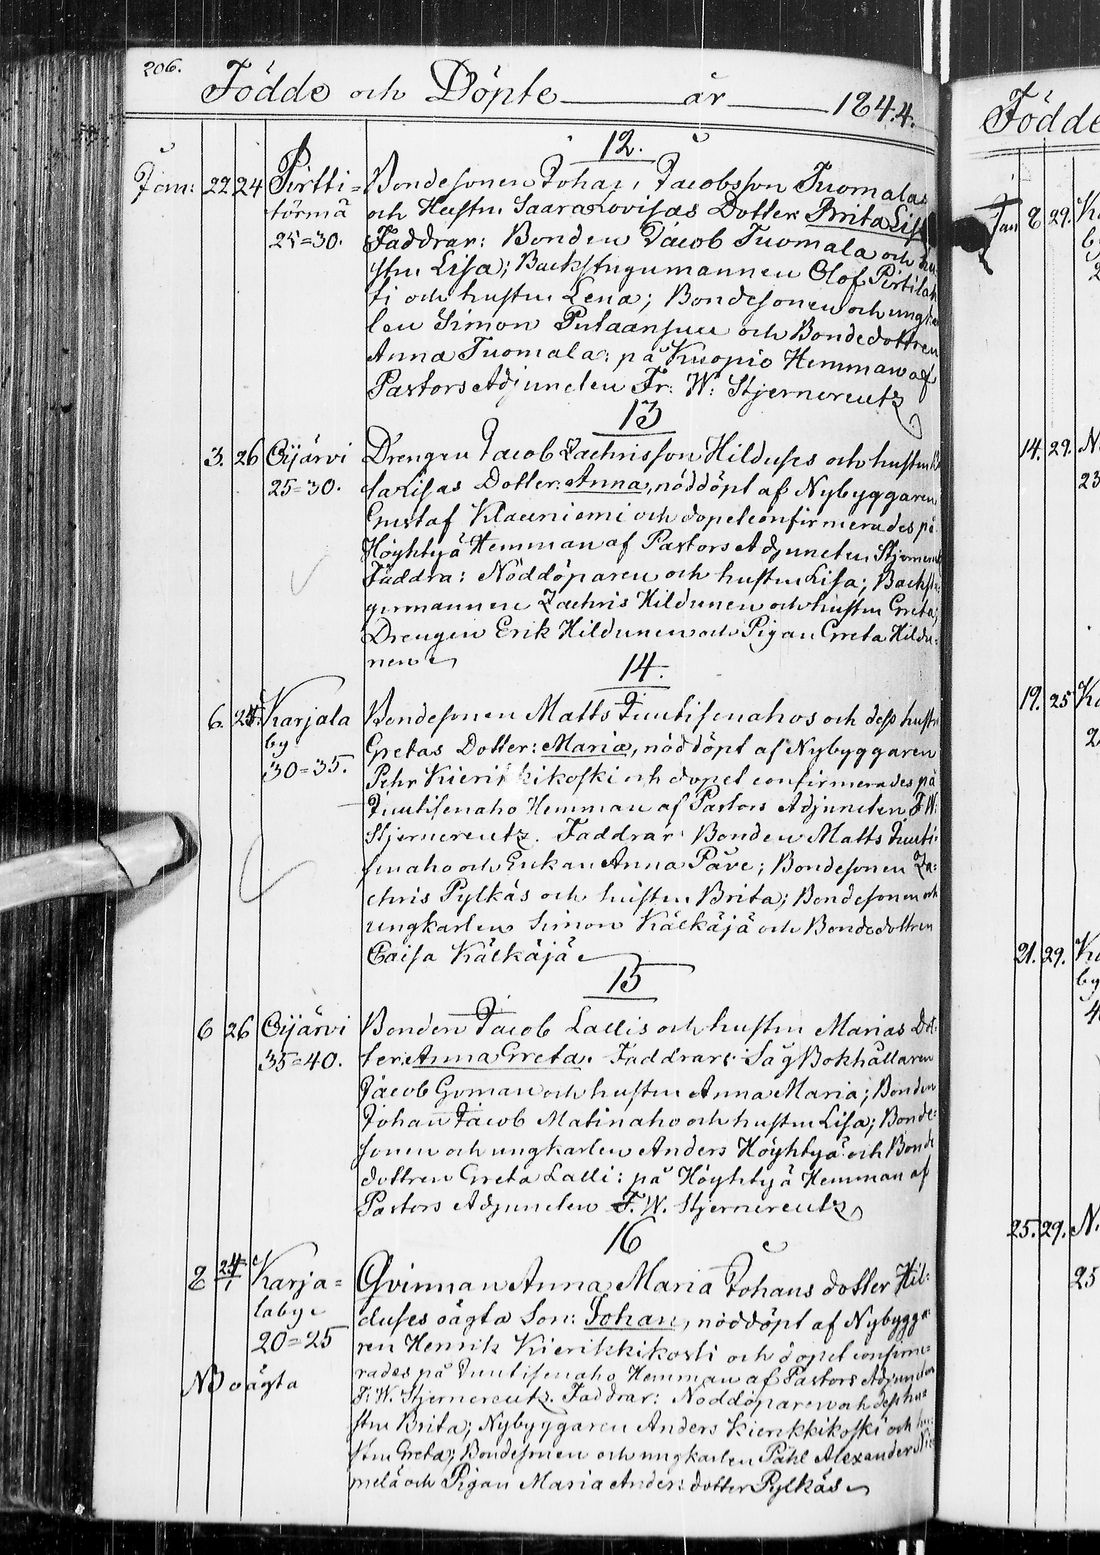 206.
Födde och Döpte år 1844.
12.
Jan: 22 24 Pirtti= Bondesonen Johan Jacobsson Tuomalas
törmä och Hustru Saara Lovisas Dotter: Brita Lisa
25=30. Faddrar: Bonden Jacob Tuomala och hu
stru Lisa; Backstugumannen Olof Pirtilah
ti och hustru Lena; Bondesonen och ungkar
len Simon Putaansuu och Bondedottren
Anna Tuomala: på Kuopio Hemman af
Pastors Adjuncten Fr: W: Stjerncreutz
13
3. 26 Oijärvi Drengen Jacob Zachrisson Hilduses och hustru
25=30. Lisas Dotter: Anna, nöddöpt af Nybyggaren
Gustaf Klauniemi och dopet confirmerades på
Höyhtyä Hemman af Pastors Adjuncten Stjerncreutz
Faddra: Nöddöparen och hustru Lisa; Backstu
gumannen Zachris Hildunen och hustru Greta;
Drengen Erik Hildunen och Pigan Greta Hildu=
nen
14.
6. 25. Karjala Bondesonen Matts Juutisenahos och dess hustru
by Gretas Dotter: Maria, nöddöpt af Nybyggaren
30=35. Pehr Kierikkikoski och dopet confirmerades på
Juutisenaho Hemman af Pastors Adjuncten F. W.
Stjerncreutz. Faddrar Bonden Matts Juuti=
senaho och Enkan Anna Páve; Bondesonen Za=
chris Pylkäs och hustru Brita; Bondesonen och
ungkarlen Simon Kälkäjä och Bondedottren
Caisa Kälkäjä
15
6 26 Oijärvi Bonden Jacob Lallis och hustru Marias Dot=
35=40. ter: Anna Greta. Faddrar: Såg Bokhållaren
Jacob Goman och hustru Anna Maria; Bonden
Johan Jacob Matinaho och hustru Lisa; Bonde=
sonen och ungkarlen Anders Höyhtyä och Bonde
dottren Greta Lalli: på Höyhtyä Hemman af
Pastors Adjuncten F. W. Stjerncreutz
16
8 24 Karja= Qvinnan Anna Maria Johans dotter Hil=
laby duses oägta Son: Johan, nöddöpt af Nybygga=
20=25 ren Henrik Kierikkikoski och dopet confirme=
rades på Juutisenaho Hemman af Pastors Adjuncten
NB oägta F. W. Stjerncreutz. Faddrar: Nöddöparen och dess hu=
stru Brita; Nybyggaren Anders Kierikkikoski och hu=
stru Greta; Bondesonen och ungkarlen Påhl Alexander Nie
melä och Pigan Maria Anders dotter Pylkäs
Födde
Jan 8 29. Ka
by
14. 29. N.
23
19. 25 Ka
2
21. 29. Ka
by
4
25. 29. N.
25